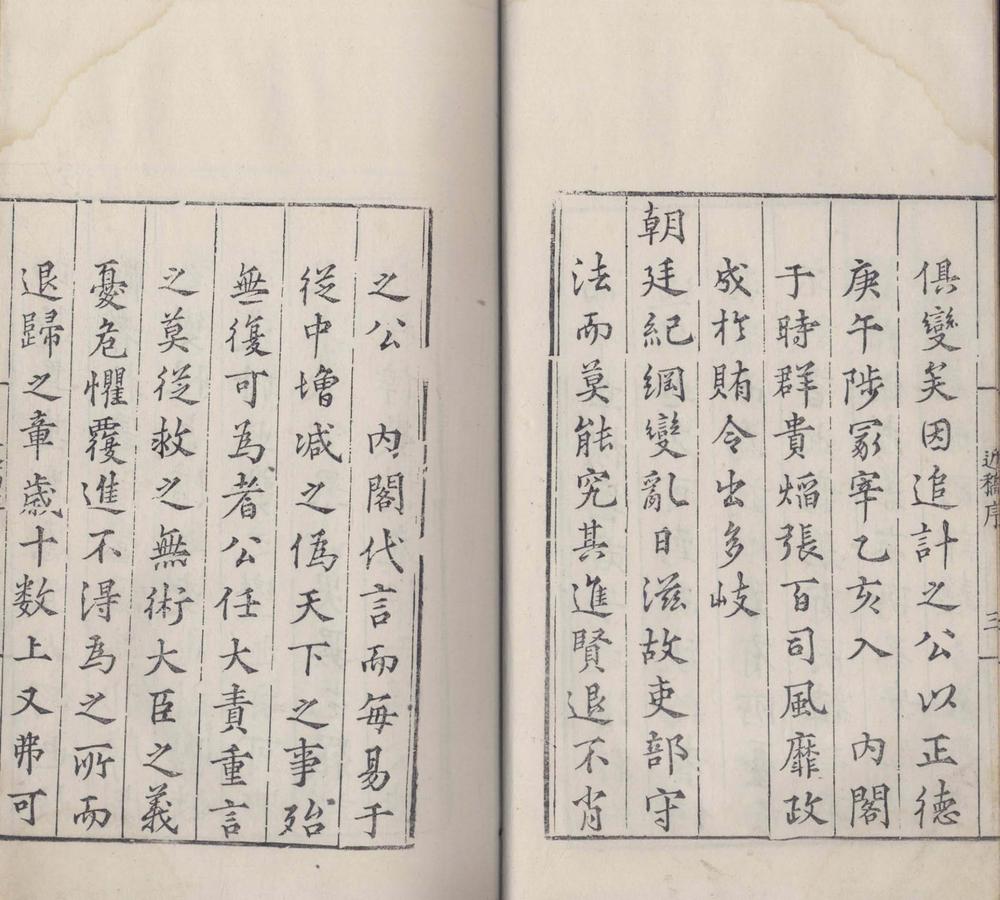 俱變矣因追計之公以正德
庚午陟冢宰乙亥入　內閣
于時群貴熖張百司風靡政
成於賄令出多岐
朝廷紀綱變亂日滋故吏部守
法而莫能究其進賢退不肖
之公　內閣代言而每易于
從中增减之僞天下之事殆
無復可為者公任大責重言
之莫從救之無術大臣之義
憂危懼覆進不得為之所而
退歸之章歲十数上又弗可
近稿序
三